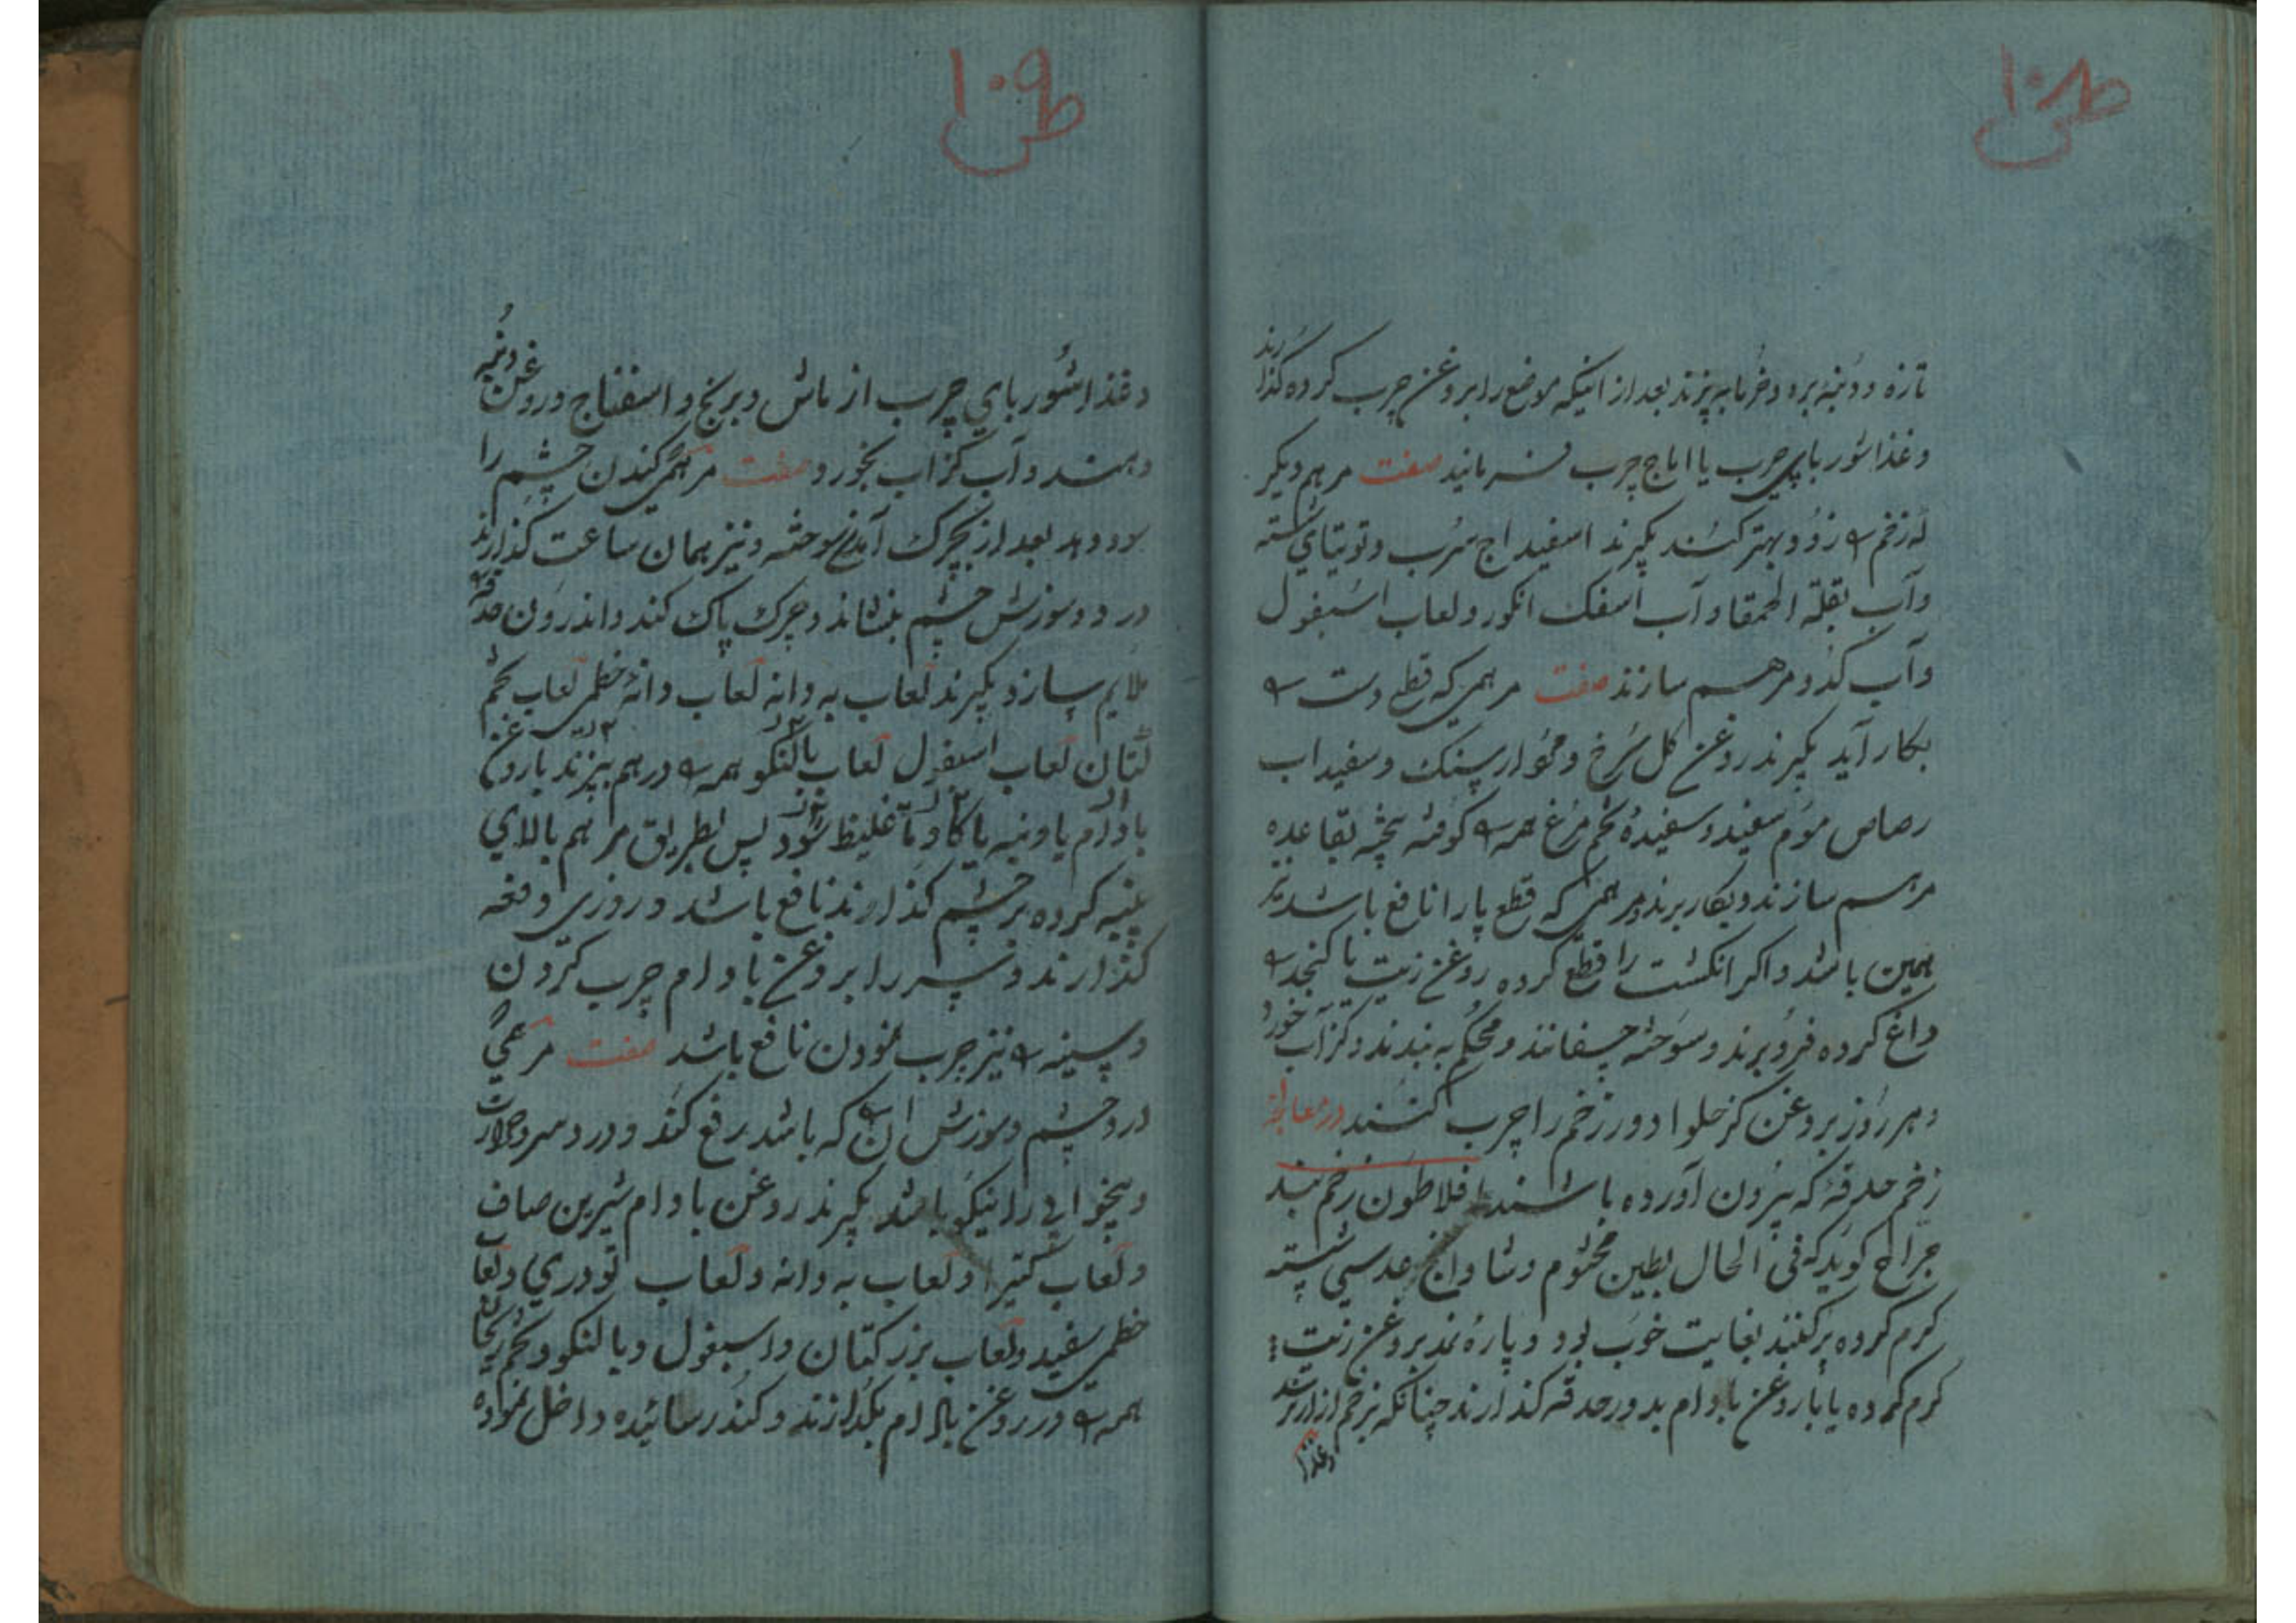 ۱۰۸
تازه و دنبه بره و خرمابه پزند بعد از اینکه موضع را بروغن چرب کرده گذارند
وغذا شوربای چرب یا اماج چرب فرمانید صفت مرهم دیکر
که زخم را زود بهتر کند بکیرند اسفیداج سرب وتوتیای شسته
وآب بقلة الحمقا وآب اسفک انکور ولعاب اسبغول
وآب کدو مرهم سازند صفت مرهمی که قطع دست را
بکار آید بکیرند روغن کل سرخ و سنک وسفیداب
رصاص موم سفید وسفیدهٔ تخم مرغ همه را کوفته بیخته بقاعده
مرهم سازند وبکار برند ومرهمی که قطع پا را نافع باشد نیز
همین باشد واکر انکشت را قطع کرده روغن زیت یا کنجد را
داغ کرده فرو برند وسوخته چسفانند ومحکم به بندند وکزآب خورد
وهر روز بروغن کز حلوا دور زخم را چرب کنند در معالجه
زخم حدقهٔ که بیرون آورده باشند افلاطون زخم بند
جراح کوید که فی الحال بطین مختوم وشادانج عدسی شسته
کرم کرده پر کنند بغایت خوب بود وپارهٔ نمد بروغن زیت
کرم کرده یا باروغن بادام بدور حدقه کذارند چنانکه بزخم از ارزند
وغذا
۱۰۹
وغذا شوربای چرب از ماش وبرنج واسفناج وروغن دنبه
دهند وآب کزاب بخورد صفت مرهمی کندن چشم را
سود دهد بعد از بچرک آمدن سوخته ونیز همان ساعت کذارند
درد وسوزش چشم بنشاند وچرک پاک کند واندرون حدقه
ملایم سازد بکیرند لعاب به دانه لعاب دانهٔ خطمی لعاب تخم
کتان لعاب اسبغول لعاب بالنکو همه را درهم بپزند باروغن
بادام یا دنبه یا کاو تا غلیظ شود پس بطریق مرهم بالای
پنبه کرده بر چشم کذارند نافع باشد و روزی دفعه
کذارند وسر را بروغن بادام چرب کردن
وسینه را نیز چرب نمودن نافع باشد صفت مرهمی
درد چشم وسوزش آن را که باشد رفع کند ودرد سر وحرارت
وبیخوابی را نیکو باشد بکیرند روغن بادام شیرین صاف
ولعاب کتیرا ولعاب به دانه ولعاب تودری ولعاب
خطمی سفید ولعاب بزر کتان واسبغول وبالنکو وتخم ریحان
همه را در روغن بادام بکدازند وکندر سائیده داخل نموده